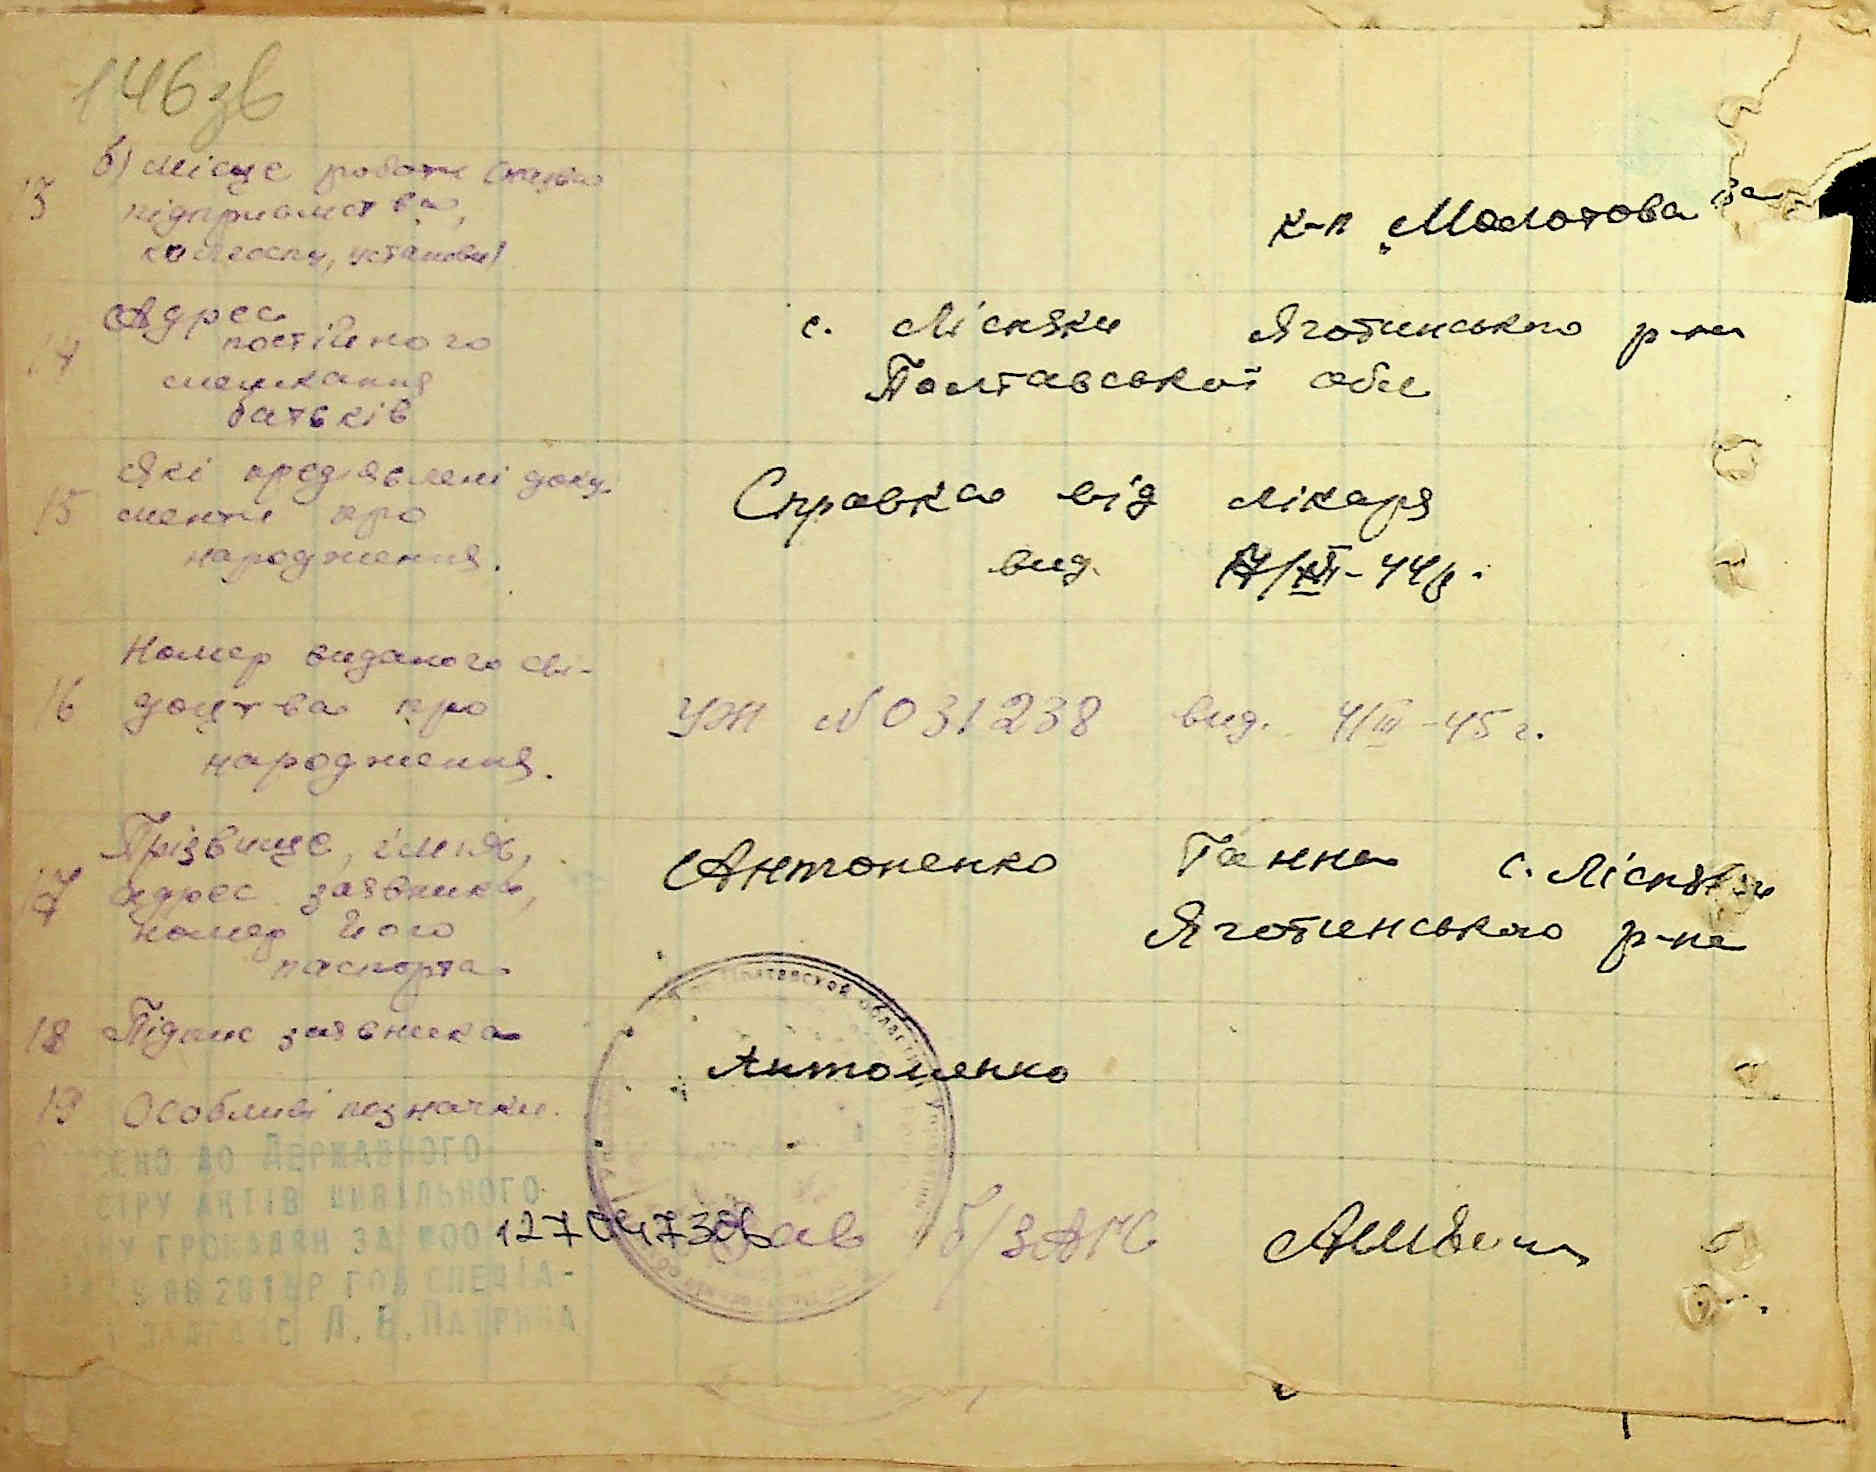 146зв
13 б) Місце роботи (назва
підприємства,
колгоспу, установи)
к-п „Молотова
14 Адрес
постійного
мешкання
батьків
с. Лісняки Яготинського р-на
Полтавської обл
15 Які предявлені доку-
менти про
народження.
Справка від лікаря
вид. 17/XII-44р.
16 Номер виданого сві-
доцтва про
народження.
УЖ №031238 вид. 4/III-45 г.
17 Прізвище, імня,
адрес заявника,
номер його
паспорта
Антоненко Ганна с. Лісняки
Яготинського р-на
18 Підпис заявника
Антоненко
19 Особливі позначки.
ЕНО ДО ДЕРЖАВНОГО
СТРУ АКТІВ ЦИВІЛЬНОГО
НУ ГРОМАДЯН ЗА №00
12704730 Зав б/ЗАГС
Полтавской области